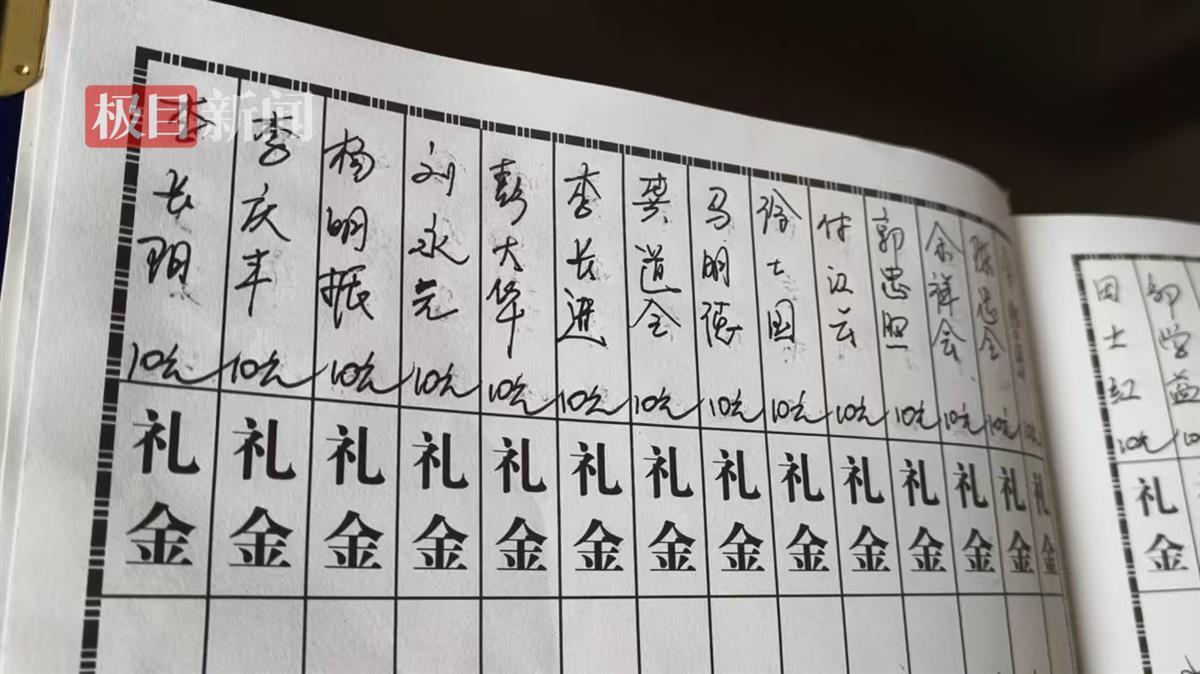 极目新闻
李长明 10元
李庆丰 10元
杨明振 10元
刘永元 10元
彭大华 10元
李长进 10元
龚道全 10元
马明德 10元
徐士国 10元
付江云 10元
郭忠照 10元
余祥会 10元
陈忠全 10元
礼金 礼金 礼金 礼金 礼金 礼金 礼金 礼金 礼金 礼金 礼金 礼金 礼金 礼金
田士红 10元
学益
礼金